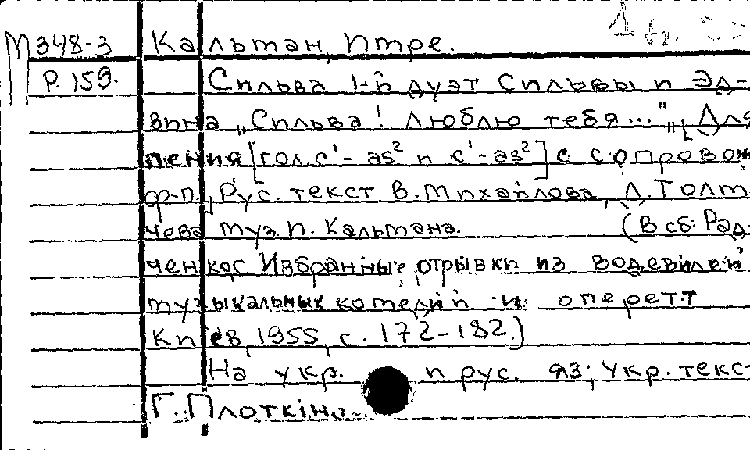 М 348-3 Кальман, Имре.
Р. 159. Сильва 1-й дуэт Сильвы и Эд-
вина „Сильва! Люблю тебя...", Для
пения [гол. c¹-as² и c¹-as²] с сопровож
ф-п., Рус. текст В. Михайлова, Л. Толм
чева муз. И. Кальмана. (В сб: Рад-
ченко с Избранные отрывки из водевилей
музыкальных комедий и оперетт
Киев, 1955, с. 172-182.)
На укр. и рус. яз; Укр. текст
Г. Плоткіна.